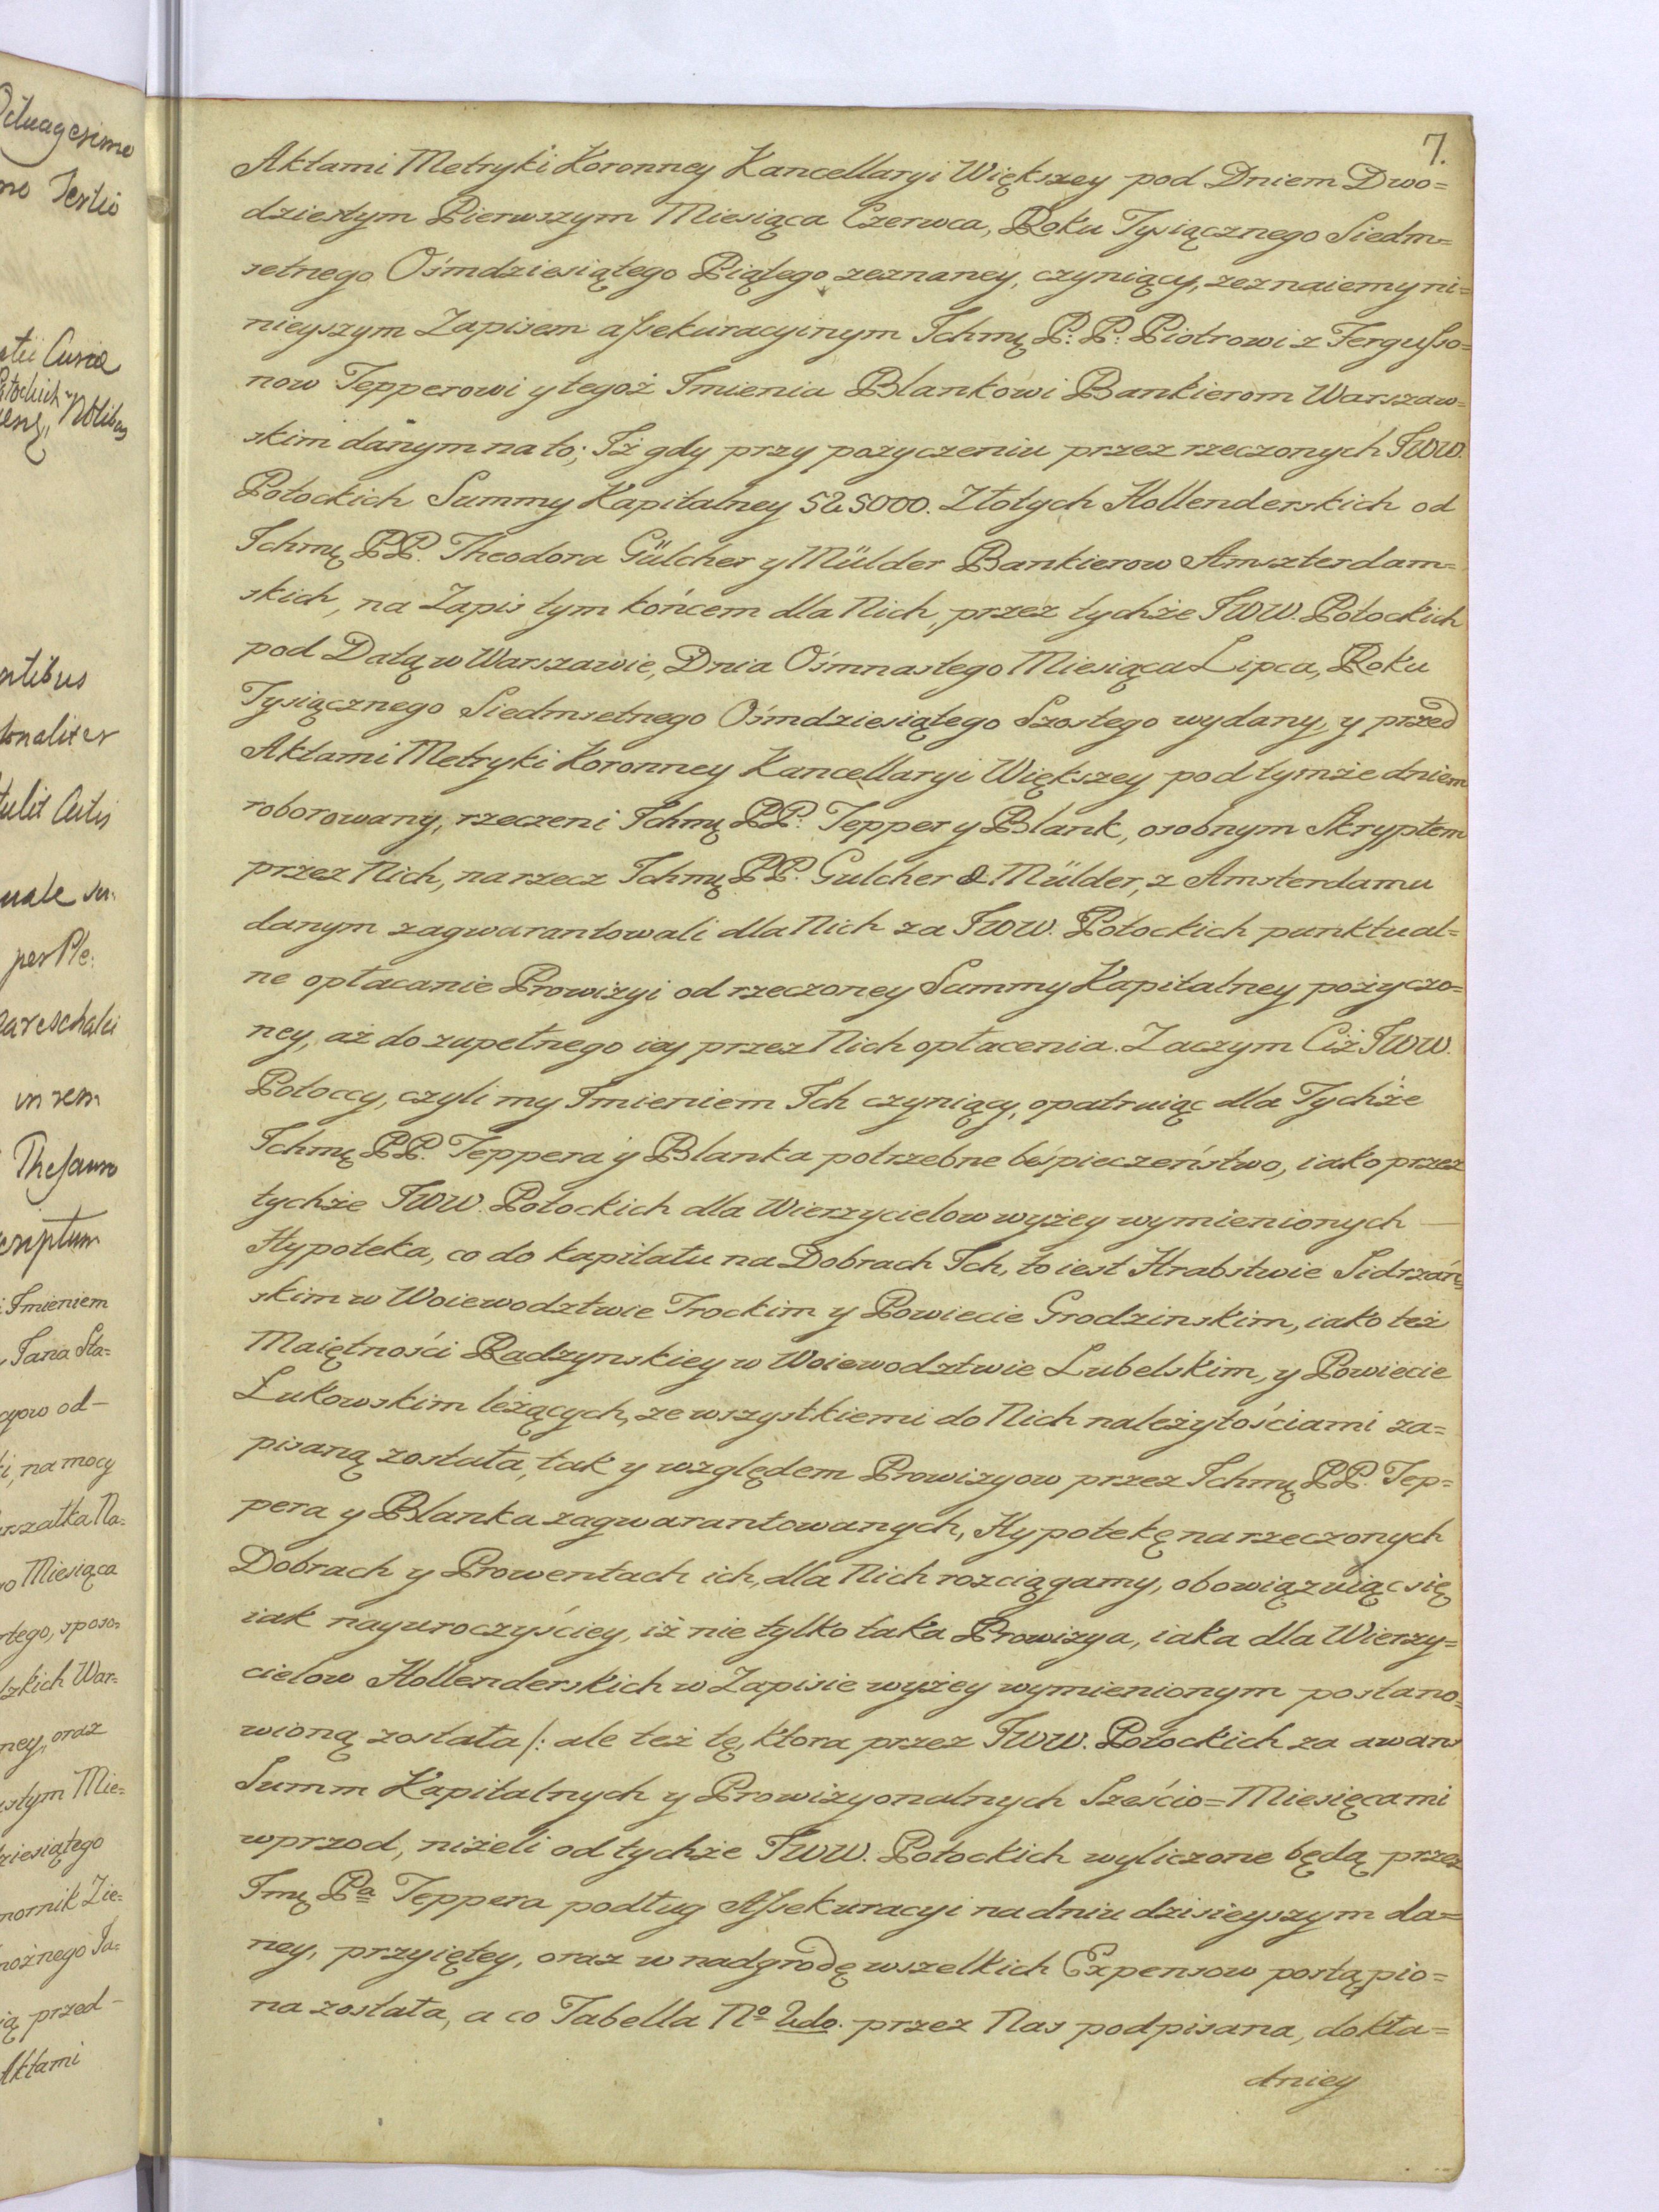 7.
Aktami Metryki Koronney Kancellaryi Większey pod Dniem Dwo=
dziestym Pierwszym Miesiąca Czerwca, Roku Tysiącznego Siedm=
setnego Ośmdziesiątego Piątego zeznaney, czyniący, zeznaiemy ni=
nieyszym Zapisem assekuracyinym Ichmę P: P: Piotrowi z Fergusso=
now Tepperowi y tegoż Imienia Blankowi Bankierom Warszaw=
skim danym na to; Iż gdy przy pożyczeniu przez rzeczonych JWW.
Potockich Summy Kapitalney 525000. Złotych Hollenderskich od
Ichmę PP. Theodora Gülcher y Mülder Bankierow Amszterdam=
skich, na Zapis tym końcem dla Nich, przez tychże JWW. Potockich
pod Datą w Warszawie, Dnia Ośmnastego Miesiąca Lipca, Roku
Tysiącznego Siedmsetnego Ośmdziesiątego Szostego wydany, y przed
Aktami Metryki Koronney Kancellaryi Większey pod tymże dniem
roborowany, rzeczeni Ichmę PP: Tepper y Blank, osobnym Skryptem
przez Nich, na rzecz Ichmę PP. Gulcher & Mülder, z Amsterdamu
danym zagwarantowali dla Nich za JWW. Potockich punktual=
ne opłacanie Prowizyi od rzeczoney Summy Kapitalney pożyczo=
ney, aż do zupełnego iey przez Nich opłacenia. Zaczym Ciż JWW.
Potoccy, czyli my Imieniem Ich czyniący, opatruiąc dla Tychże
Ichmę PP. Teppera y Blanka potrzebne bespieczeństwo, iako przez
tychże JWW. Potockich dla Wierzycielow wyżey wymienionych —
Hypoteka, co do kapitału na Dobrach Ich, to iest Hrabstwie Sidrzań=
skim w Woiewodztwie Trockim y Powiecie Grodzinskim, iako też
Maiętności Radzynskiey w Woiewodztwie Lubelskim, y Powiecie
Łukowskim leżących, ze wszystkiemi do Nich należytościami za=
pisaną została, tak y względem Prowizyow przez Ichmę PP. Tep=
pera y Blanka zagwarantowanych, Hypotekę na rzeczonych
Dobrach y Prowentach ich, dla Nich rozciągamy, obowiązuiąc się
iak nayuroczyściey, iż nie tylko taka Prowizya, iaka dla Wierzy=
cielow Hollenderskich w Zapisie wyżey wymienionym postano=
wioną została /: ale też tę, ktora przez JWW. Potockich za awans
Summ Kapitalnych y Prowizyonalnych Sześcio=Miesięcami
wprzod, niżeli od tychże JWW. Potockich wyliczone będą przez
Imę Pa Teppera podług Assekuracyi na dniu dzisieyszym da=
ney, przyiętey, oraz w nadgrodę wszelkich Expensow postąpio=
na została, a co Tabella No 2do. przez Nas podpisana, dokła=
dniey